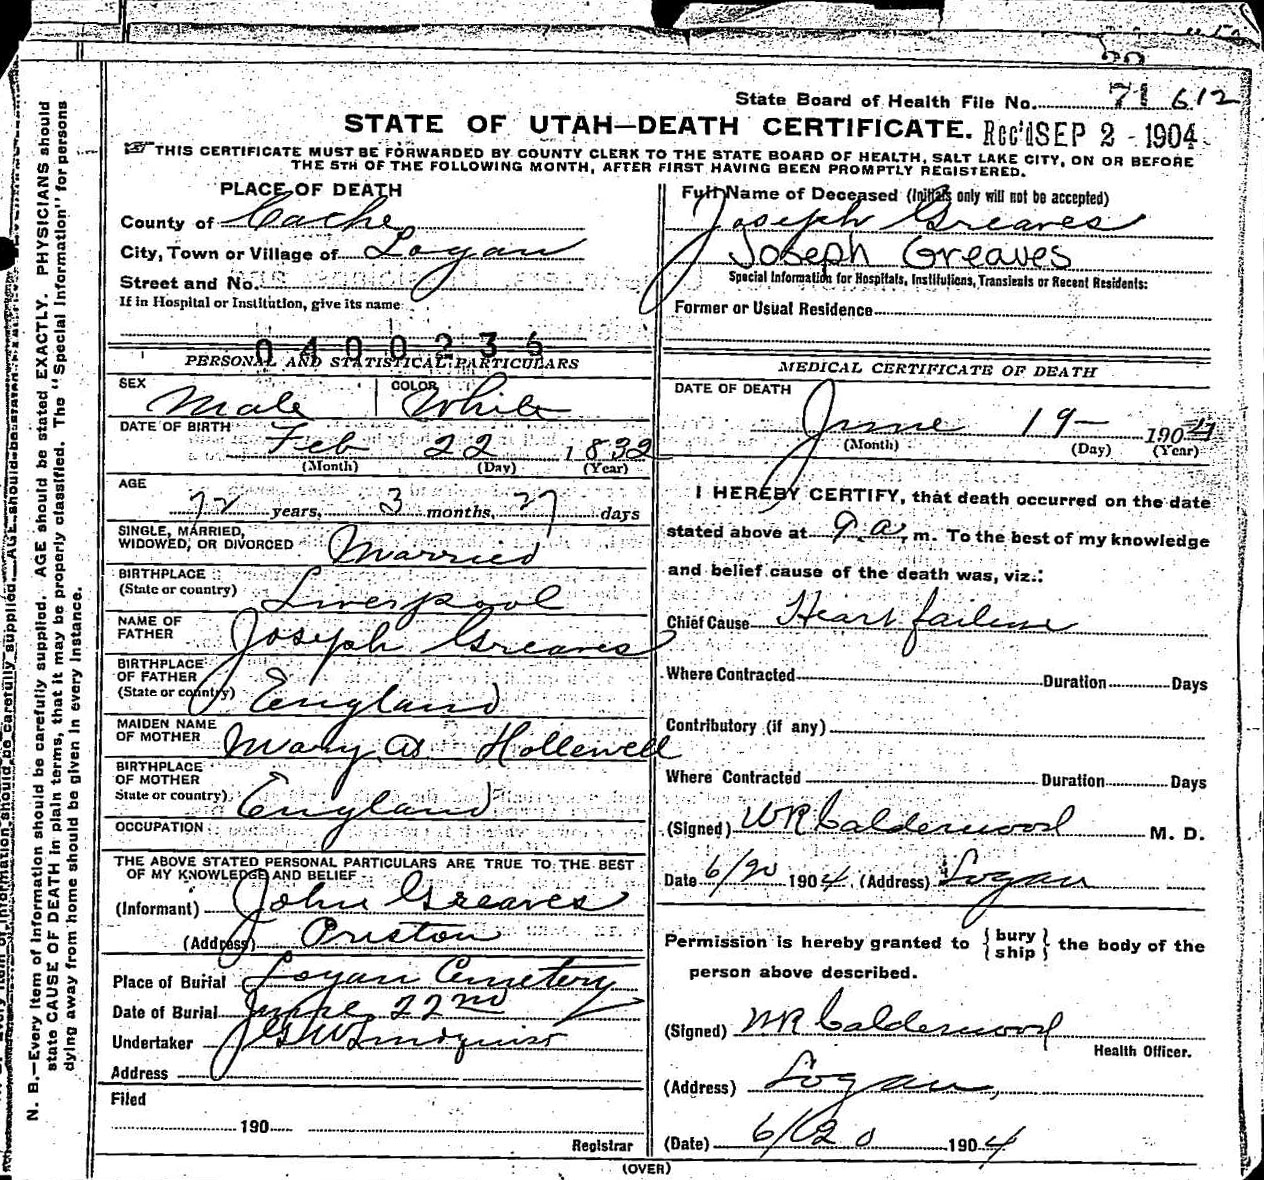 State Board of Health File No. 71 612
STATE OF UTAH—DEATH CERTIFICATE. Rec'd SEP 2 - 1904
THIS CERTIFICATE MUST BE FORWARDED BY COUNTY CLERK TO THE STATE BOARD OF HEALTH, SALT LAKE CITY, ON OR BEFORE
THE 5TH OF THE FOLLOWING MONTH, AFTER FIRST HAVING BEEN PROMPTLY REGISTERED.
PLACE OF DEATH
County of Cache
City, Town or Village of Logan
Street and No.
If in Hospital or Institution, give its name
0400236
PERSONAL AND STATISTICAL PARTICULARS
SEX Male COLOR White
DATE OF BIRTH
Feb 22 1832
(Month) (Day) (Year)
AGE
72 years, 3 months, 27 days
SINGLE, MARRIED,
WIDOWED, OR DIVORCED Married
BIRTHPLACE
(State or country) Liverpool
NAME OF
FATHER Joseph Greaves
BIRTHPLACE
OF FATHER
(State or country) England
MAIDEN NAME
OF MOTHER Mary A Hollewell
BIRTHPLACE
OF MOTHER
State or country) England
OCCUPATION
THE ABOVE STATED PERSONAL PARTICULARS ARE TRUE TO THE BEST
OF MY KNOWLEDGE AND BELIEF
(Informant) John Greaves
(Address) Preston
Place of Burial Logan Cemetery
Date of Burial June 22nd
Undertaker Lindquist
Address
Filed
190
Registrar
Full Name of Deceased (Initials only will not be accepted)
Joseph Greaves
Joseph Greaves
Special Information for Hospitals, Institutions, Transients or Recent Residents:
Former or Usual Residence
MEDICAL CERTIFICATE OF DEATH
DATE OF DEATH
June 19 – 1904
(Month) (Day) (Year)
I HEREBY CERTIFY, that death occurred on the date
stated above at 9 a. m. To the best of my knowledge
and belief cause of the death was, viz.:
Chief Cause Heart failure
Where Contracted Duration Days
Contributory (if any)
Where Contracted Duration Days
(Signed) WR Calderwood M. D.
Date 6/20 1904, (Address) Logan
Permission is hereby granted to {bury ship} the body of the
person above described.
(Signed) WR Calderwood
Health Officer.
(Address) Logan,
(Date) 6/20 1904
(OVER)
N. B.—Every item of information should be carefully supplied. AGE should be stated EXACTLY. PHYSICIANS should
state CAUSE OF DEATH in plain terms, that it may be properly classified. The "Special Information" for persons
dying away from home should be given in every instance.